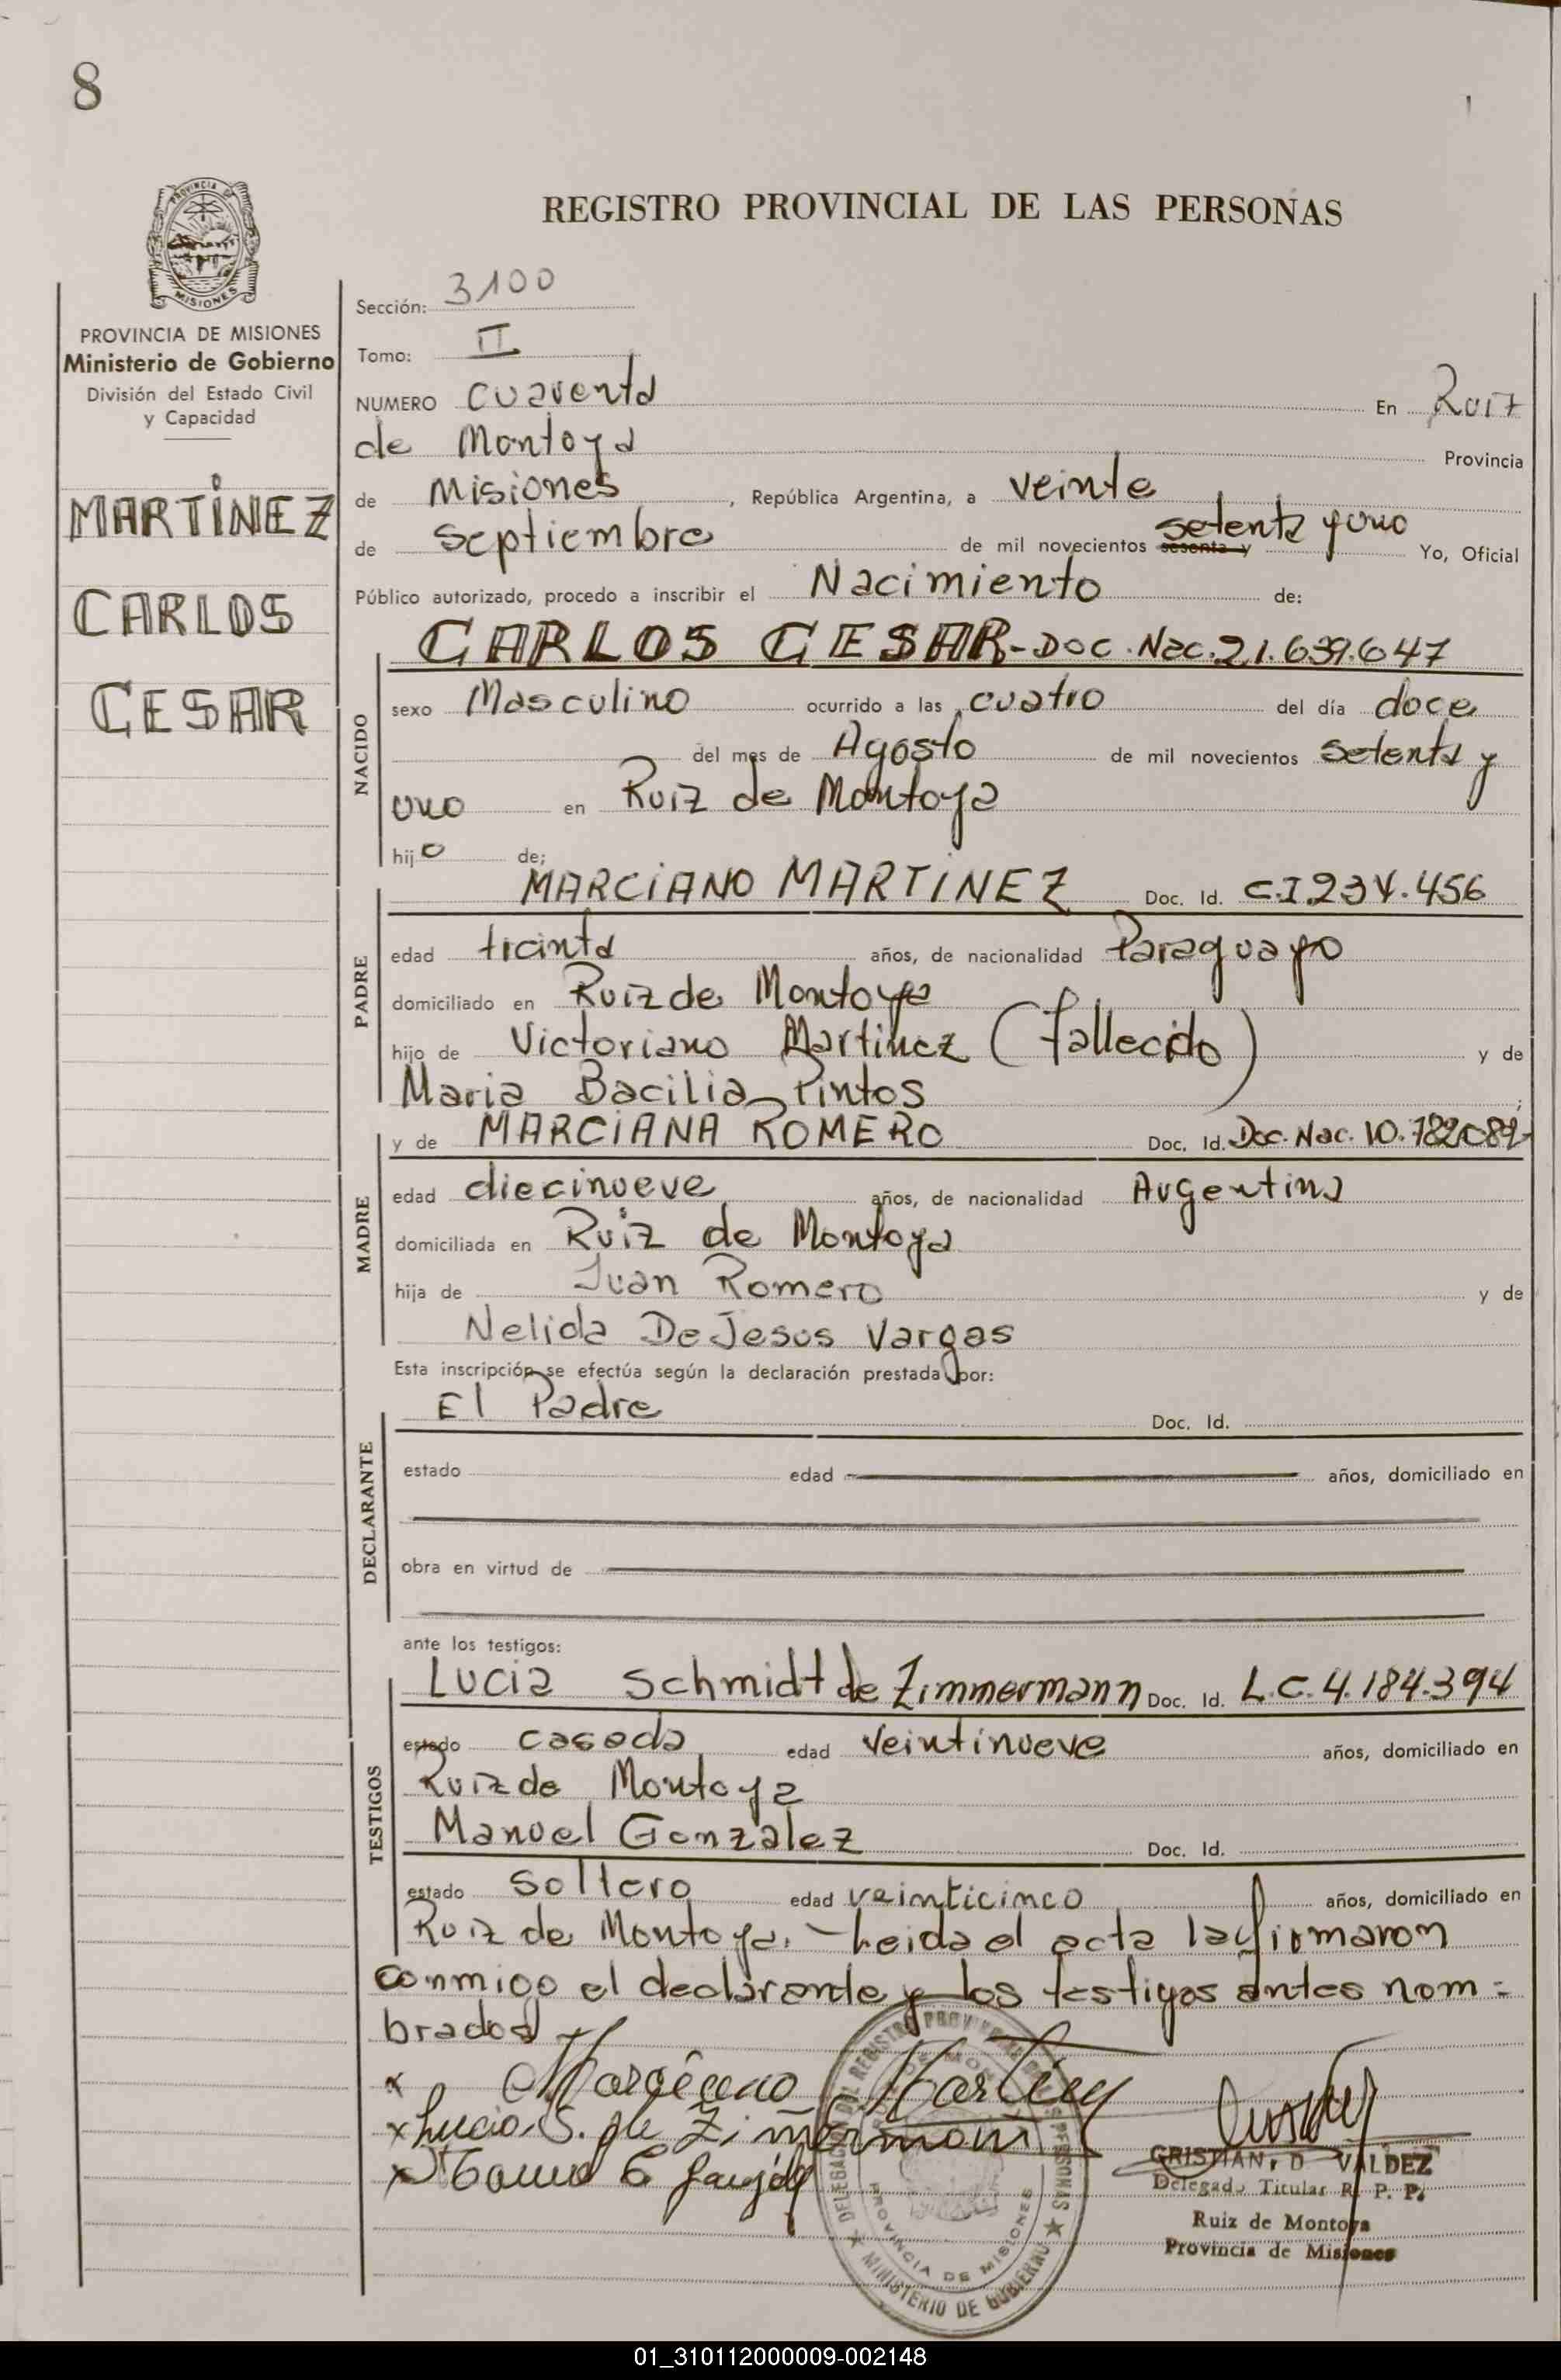 8
REGISTRO PROVINCIAL DE LAS PERSONAS
PROVINCIA DE
MISIONES
PROVINCIA DE MISIONES
Ministerio de Gobierno
División del Estado Civil
y Capacidad
MARTINEZ
CARLOS
CESAR
Sección: 3100
Tomo: II
NUMERO cuarenta En Ruiz
de Montoya Provincia
de Misiones, República Argentina, a veinte
de septiembre de mil novecientos sesenta y setenta y uno Yo, Oficial
Público autorizado, procedo a inscribir el Nacimiento de:
CARLOS CESAR-DOC. Nac. 21.639.647
NACIDO
sexo Masculino ocurrido a las cuatro del día doce
del mes de Agosto de mil novecientos setenta y
uno en Ruiz de Montoya
hijo de;
PADRE
MARCIANO MARTINEZ Doc. Id. C.I.234.456
edad treinta años, de nacionalidad Paraguayo
domiciliado en Ruiz de Montoya
hijo de Victoriano Martinez (Fallecido) y de
Maria Bacilia Pintos;
MADRE
y de MARCIANA ROMERO Doc. Id. Doc. Nac. 10.782.089
edad diecinueve años, de nacionalidad Argentina
domiciliada en Ruiz de Montoya
hija de Juan Romero y de
Nelida De Jesus Vargas
Esta inscripción se efectúa según la declaración prestada por:
DECLARANTE
El Padre Doc. Id.
estado edad años, domiciliado en
obra en virtud de
ante los testigos:
TESTIGOS
Lucia Schmidt de Zimmermann Doc. Id. L.C. 4.184.394
estado casada edad veintinueve años, domiciliado en
Ruiz de Montoya
Manuel Gonzalez Doc. Id.
estado soltero edad veinticinco años, domiciliado en
Ruiz de Montoya. - Leida el acta la firmaron
conmigo el declarante y los testigos antes nom=
brados
x Marciano Martinez
x Lucia S. de Zimmermann
x
DELEGACION DEL REGISTRO PROVINCIAL DE LAS PERSONAS
PROVINCIA DE MISIONES
MINISTERIO DE GOBIERNO
CRISTIAN D VALDEZ
Delegado Titular R. P. P.
Ruiz de Montoya
Provincia de Misiones
01_310112000009-002148